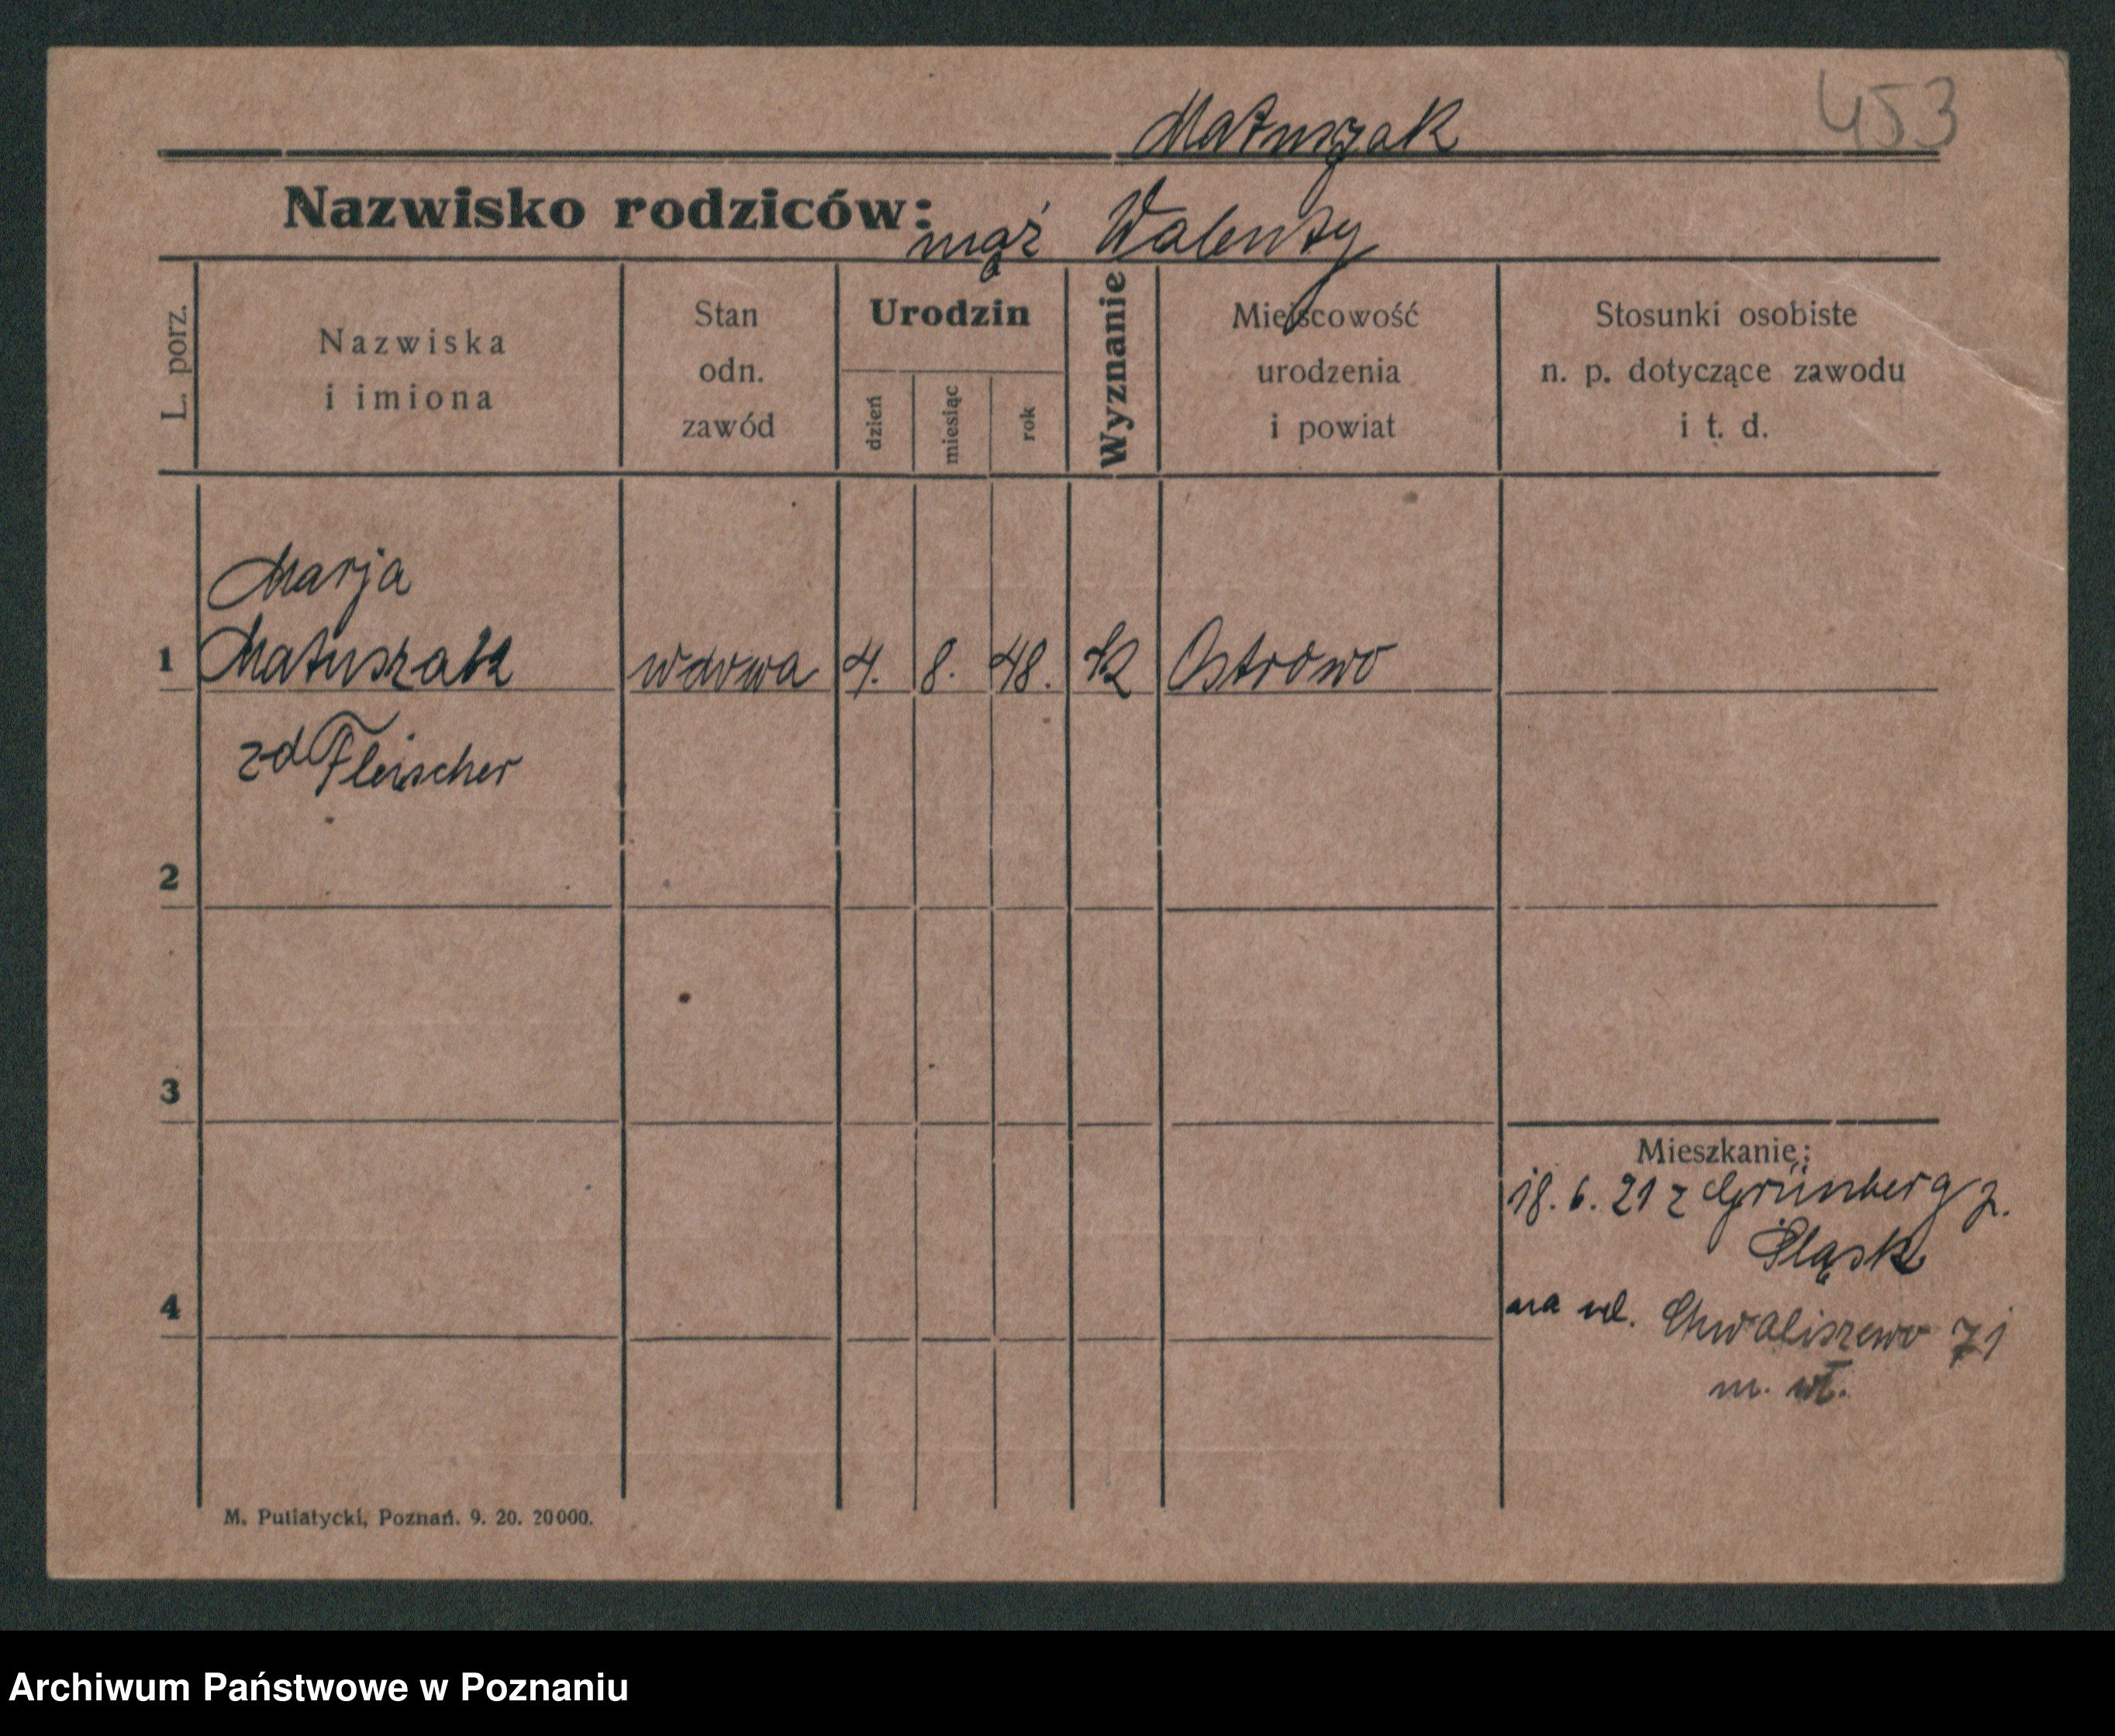 Matuszak
453
Nazwisko rodziców:
mąż Walenty
L. porz.
Nazwiska
i imiona
Stan
odn.
zawód
Urodzin
dzień
miesiąc
rok
Wyznanie
Miejscowość
urodzenia
i powiat
Stosunki osobiste
n. p. dotyczące zawodu
i t. d.
Marja
1 Matuszak wdowa 4. 8. 48. k Ostrowo
zd Fleischer
2
3
Mieszkanie:
18. 6. 21 z Grünberg
Śląsk
4
na ul. Chwaliszewo 71
m. wł.
M. Putiatycki, Poznań. 9. 20. 20000.
Archiwum Państwowe w Poznaniu